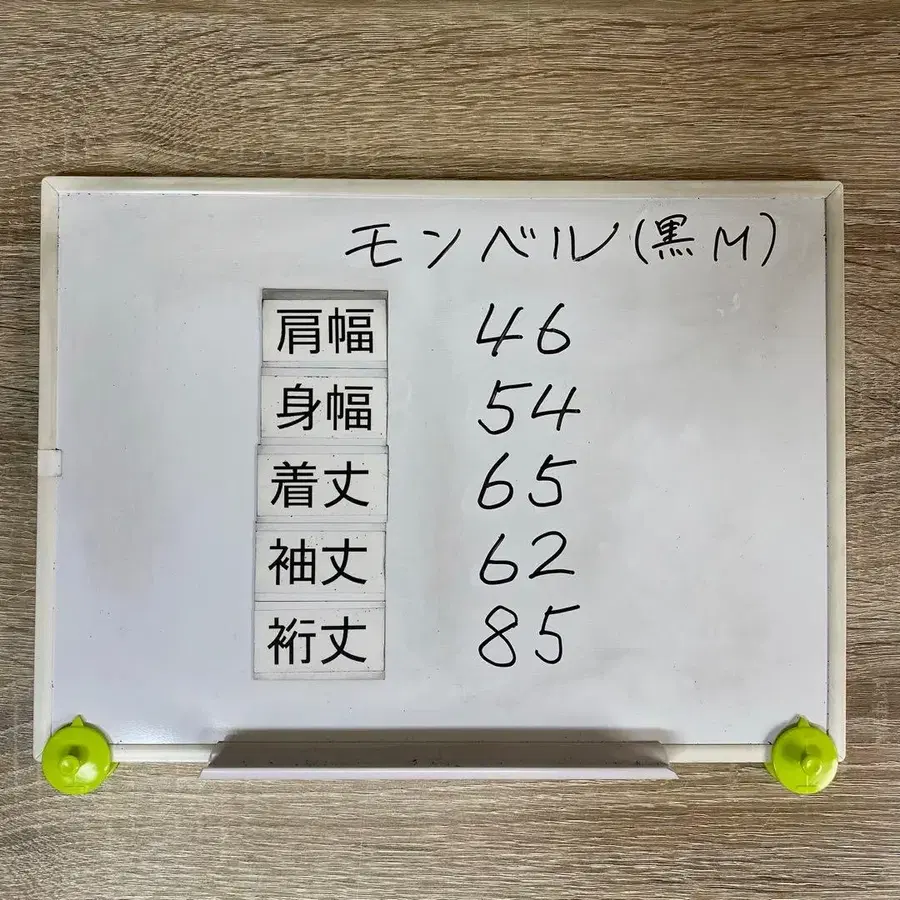 モンベル(黒M)
肩幅 46
身幅 54
着丈 65
袖丈 62
裄丈 85